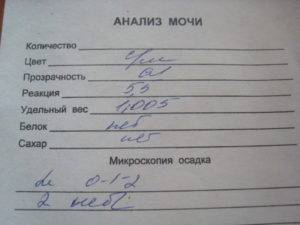 АНАЛИЗ МОЧИ
Количество
Цвет
Прозрачность
Реакция 5,5
Удельный вес 1,005
Белок нет
Сахар нет
Микроскопия осадка
0-1-2